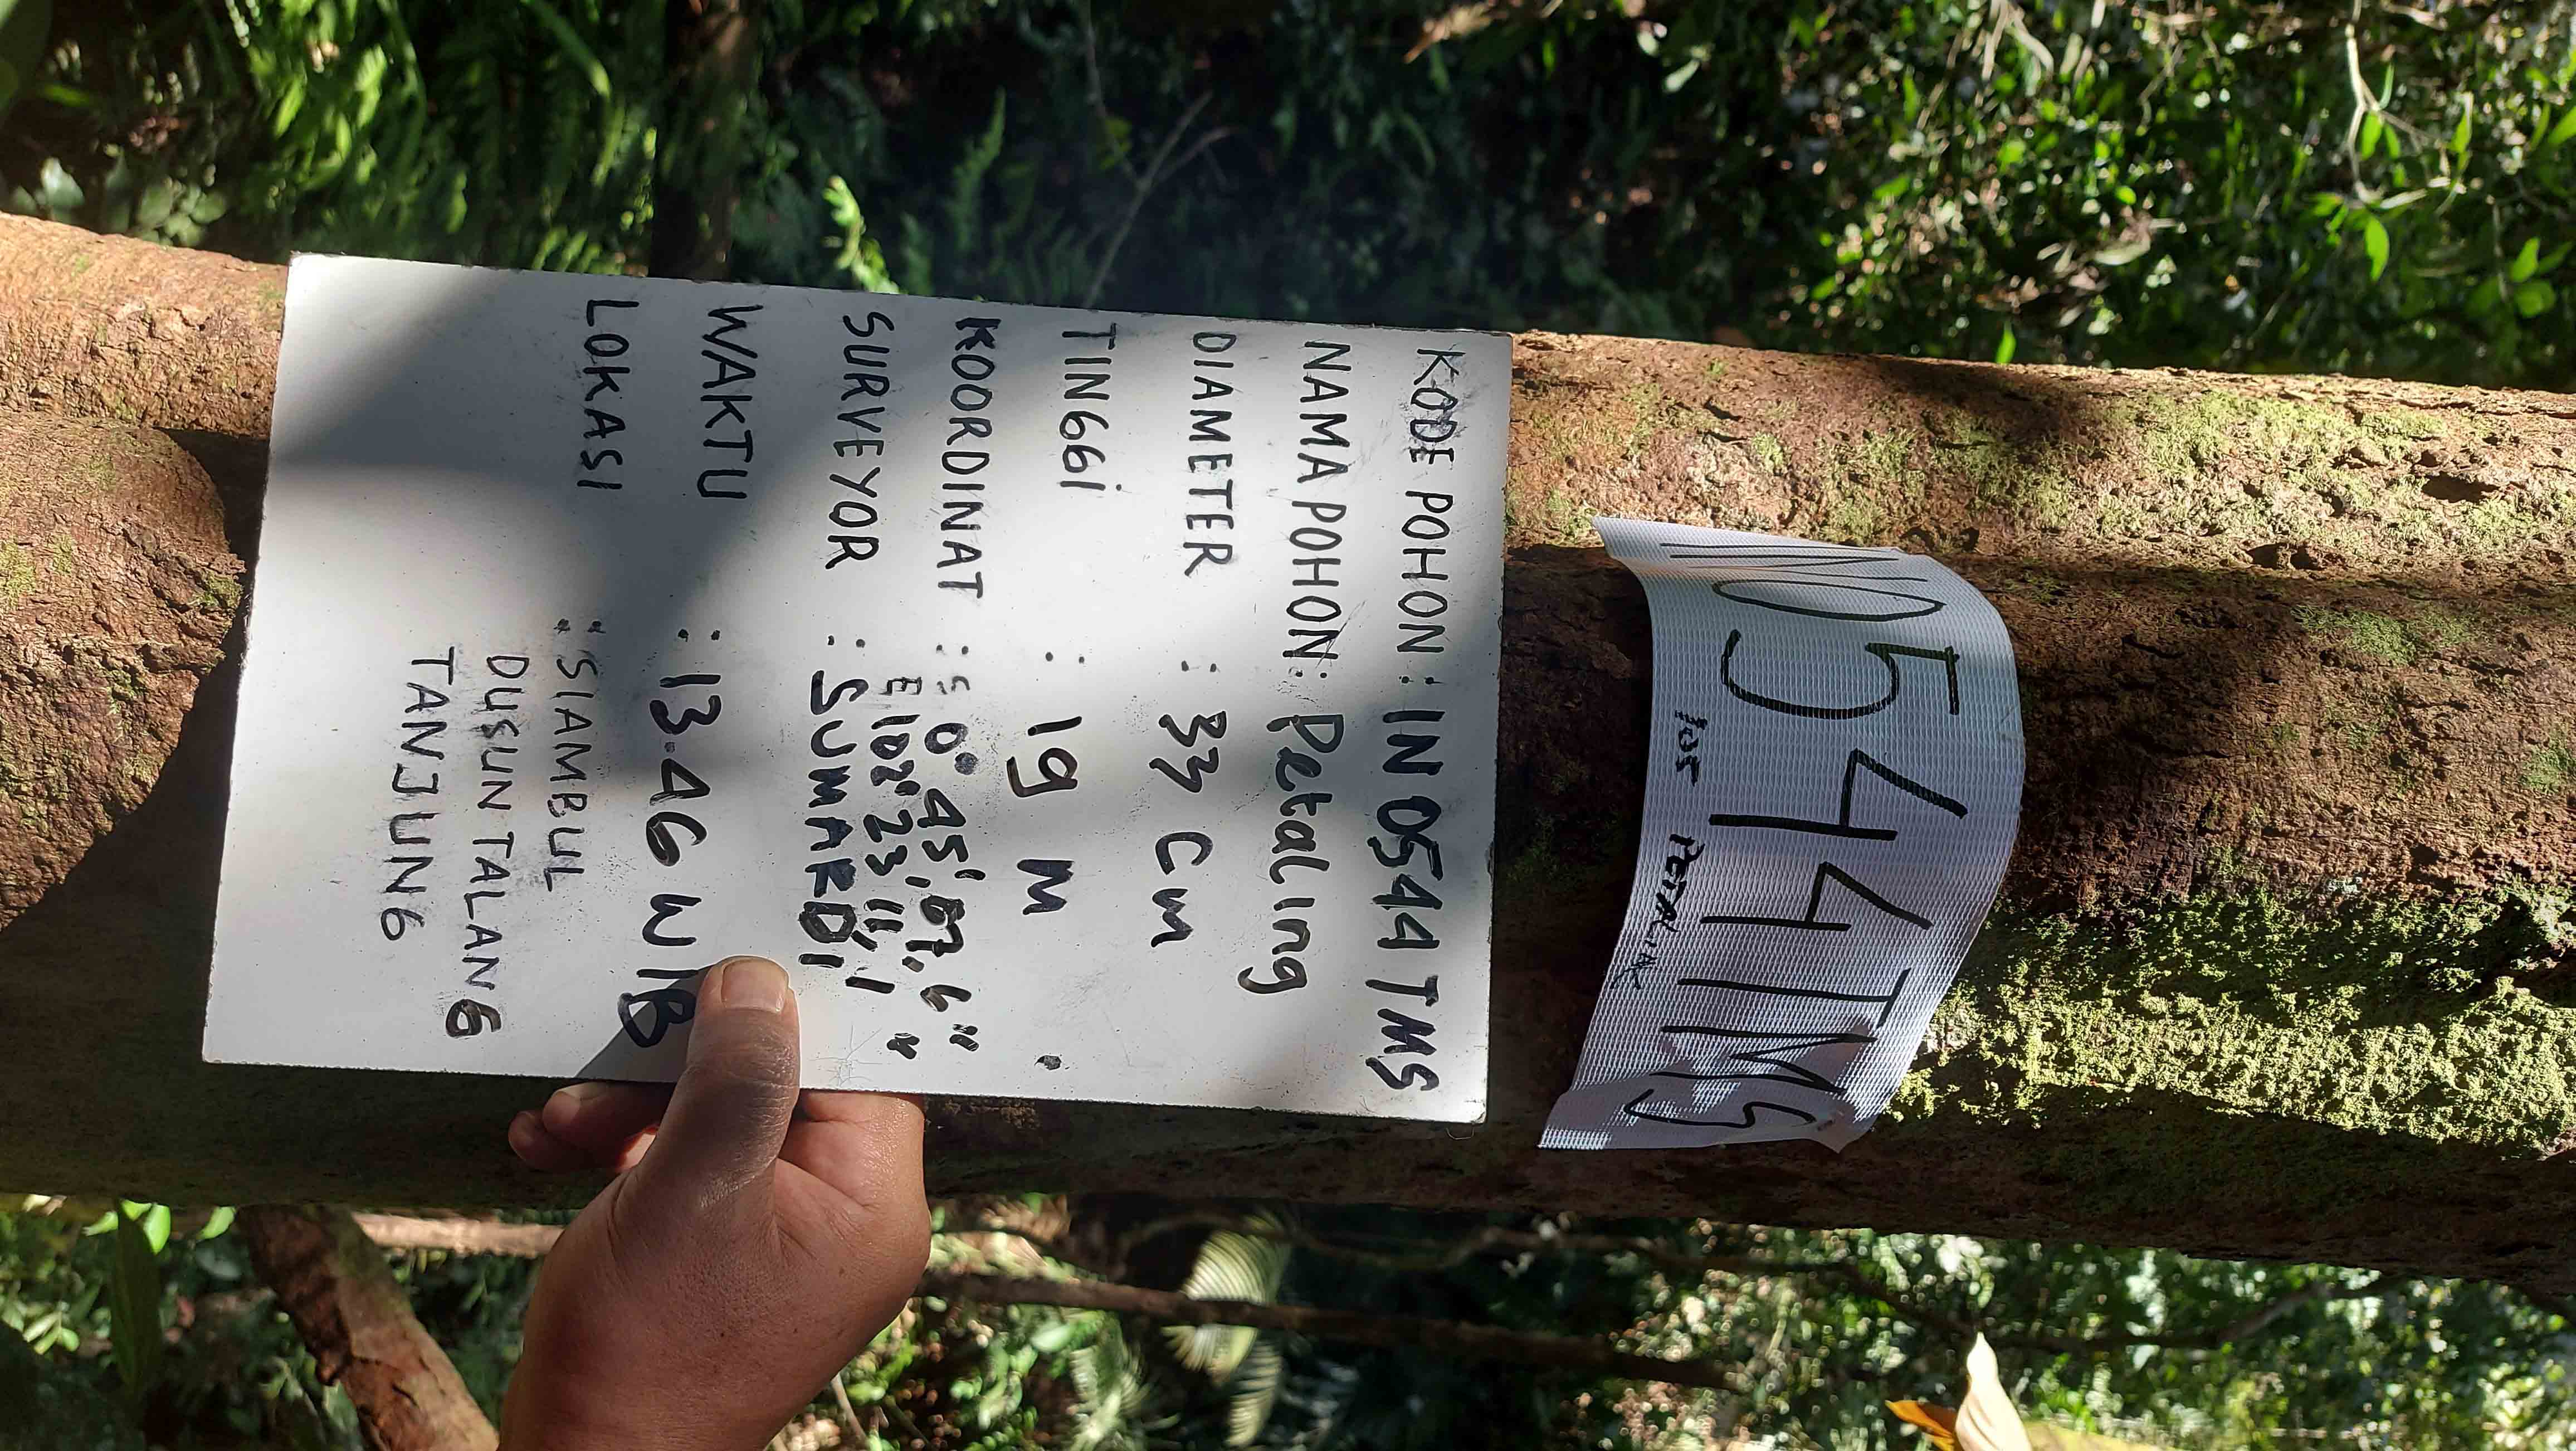 IN0544TMS
105 PETALING
KODE POHON : IN 0544 TMS
NAMA POHON : Petaling
DIAMETER : 33 Cm
TINGGI : 19 M
KOORDINAT : S 0° 45', 07, 6"
E 102° 23' 11, 1"
SURVEYOR : SUMARDI
WAKTU : 13.46 WIB
LOKASI : SIAMBUL
DUSUN TALANG
TANJUNG